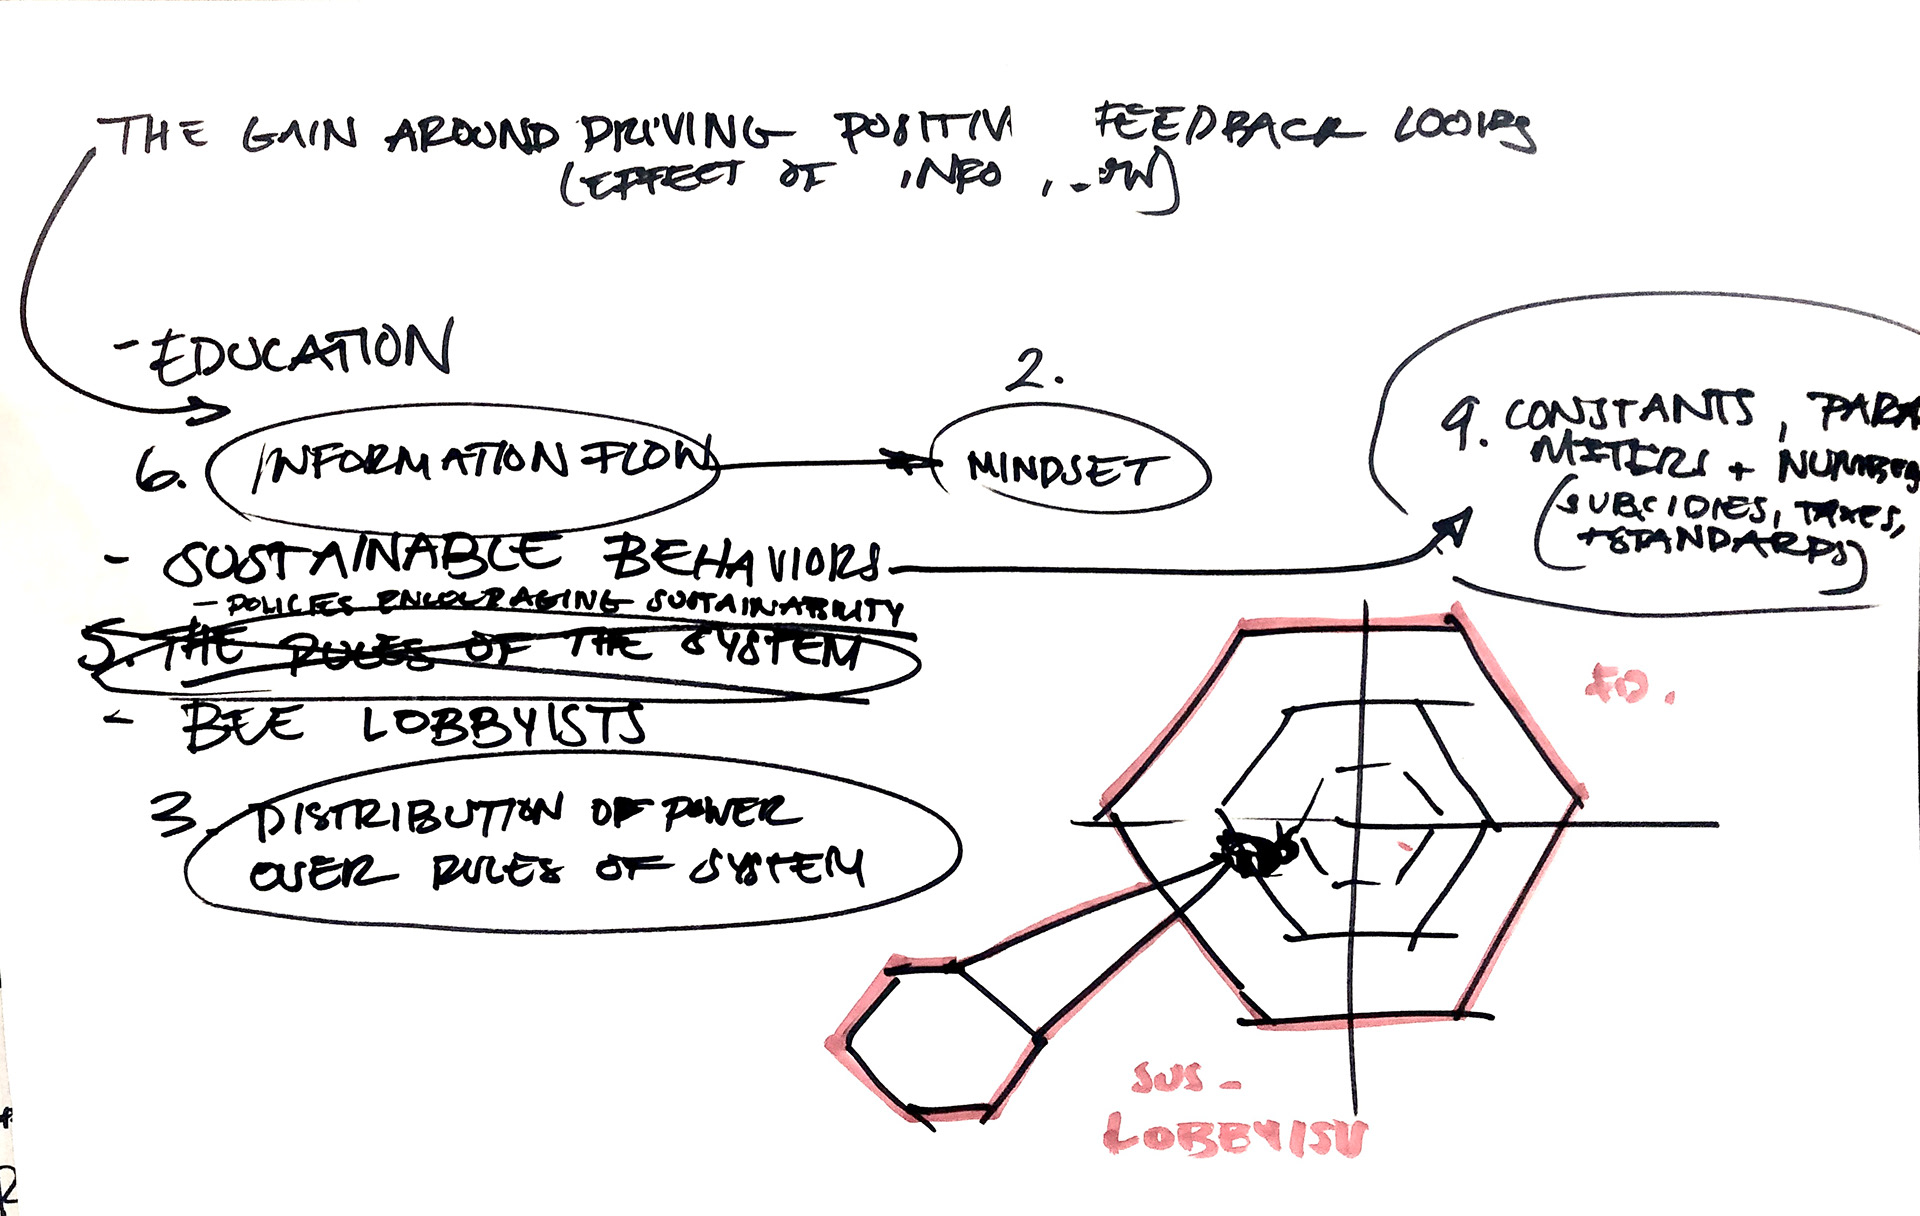 THE GAIN AROUND DRIVING POSITIV FEEDBACK LOOPS
(EFFECT OF INFO
- EDUCATION
6. INFORMATION FLOW
2.
MINDSET
9. CONSTANTS, PARA
METERS + NUMBERS
(SUBSIDIES, TAXES,
+STANDARDS)
- SUSTAINABLE BEHAVIORS
- POLICIES ENCOURAGING SUSTAINABILITY
5. THE RULES OF THE SYSTEM
- BEE LOBBYISTS
3. DISTRIBUTION OF POWER
OVER RULES OF SYSTEM
ED.
SUS -
LOBBYISU